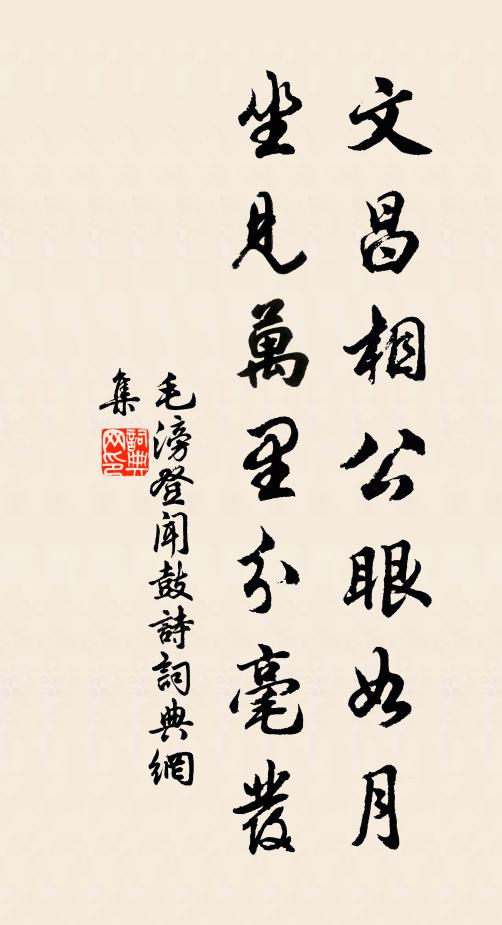 文昌相公眼如月
坐見萬里分毫發
毛滂登聞鼓詩詞典網
集
詞典網印